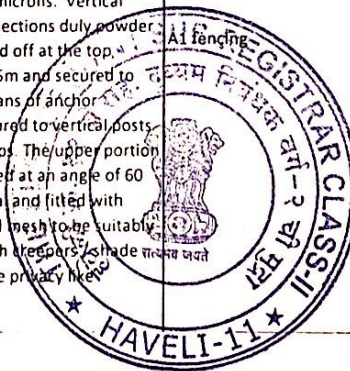 microns. Vertical
ections duly powder
d off at the top
5m and secured to
ans of anchor
ured to vertical posts
os. The upper portion
ed at an angle of 60
al and fitted with
d mesh to be suitably
h creepers / shade
e privacy like
A1 fencing
REGISTRAR CLASS-II
दुय्यम निबंधक वर्ग-२ ची मुद्रा
सत्यमेव जयते
★ HAVELI-11 ★